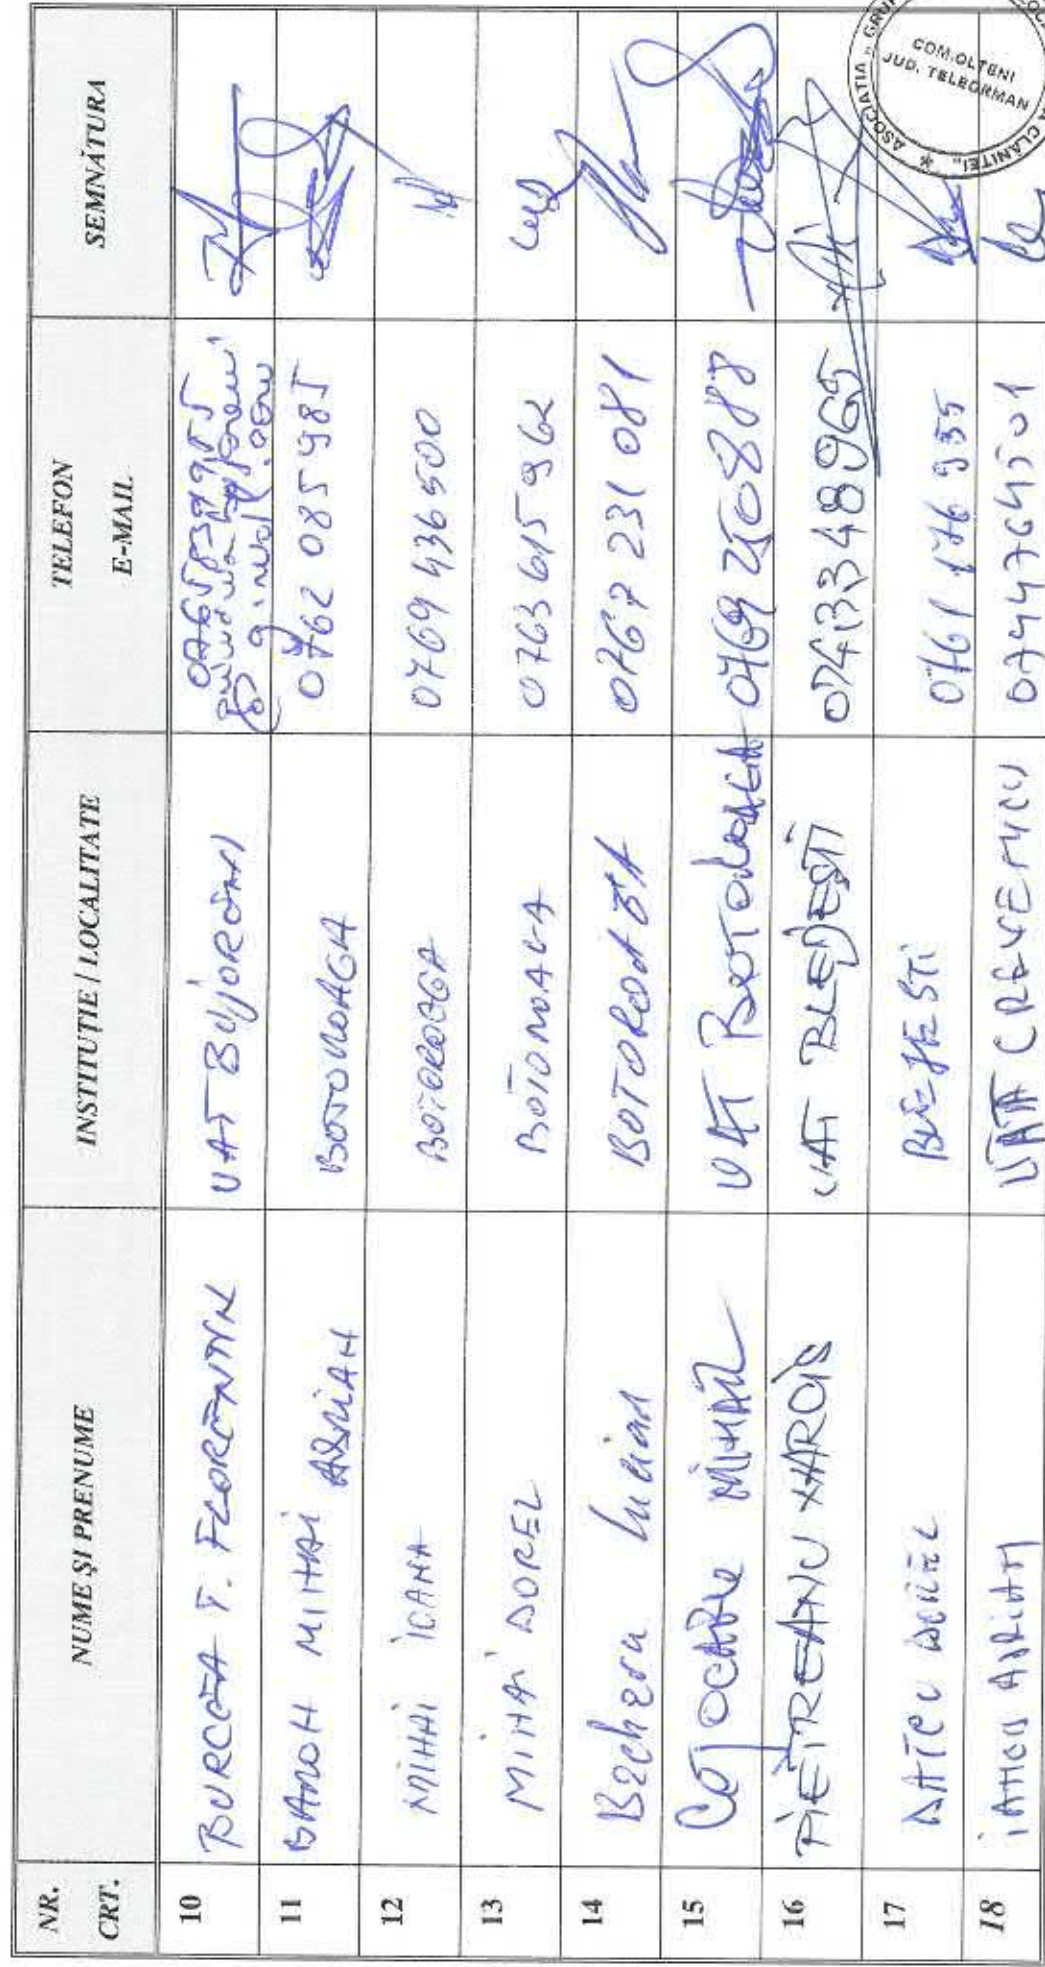 NR. CRT. NUME ȘI PRENUME INSTITUȚIE / LOCALITATE TELEFON E-MAIL SEMNĂTURA
10 BURCEA F. FLORENTIN UAT BUJORENI
11 BANOH MIHAI ADRIAN BOTOROAGA 0762 085985
12 MIHAI IOANA BOTOROAGA 0769 436500
13 MIHAI DOREL BOTOROAGA 0763 615962
14 Lucian BOTOROAGA 0767 231 081
15 COJOCARU MIHAIL UAT BOTOROAGA 0769 250888
16 PIETREANU UAT BLEJEȘTI 0743348965
17 DATCU BLEJESTI 0761 176 935
18 IANCU ADRIAN UAT CREVENICU 0744764501
ASOCIATIA "GRUP
COM.OLTENI
JUD. TELEORMAN
CLĂNIȚEI"